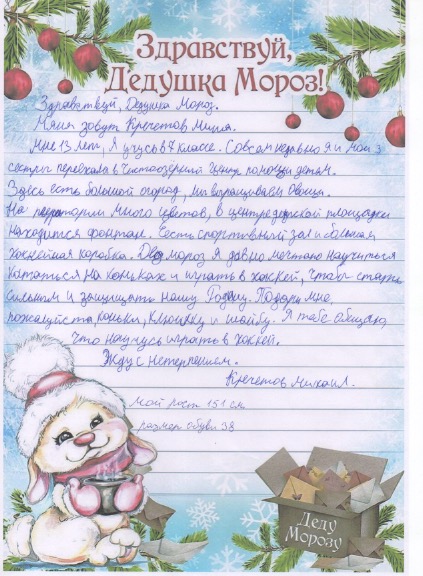 Здравствуй,
Дедушка Мороз!
Здравствуй, Дедушка Мороз.
Меня зовут Кречетов Миша.
Мне 13 лет, Я учусь в 7 классе. Совсем недавно я и мои 3
сестры переехали в Чистоозёрный центр помощи детям.
Здесь есть большой огород, мы выращиваем Овощи.
На территории много цветов, в центре детской площадки
находится фонтан. Есть спортивный зал и большая
хоккейная коробка. Дед мороз я давно мечтаю научиться
кататься на коньках и играть в хоккей, чтобы стать
сильным и защищать нашу Родину. Подари мне,
пожалуйста, коньки, клюшку и шайбу. Я тебе обещаю,
что научусь играть в хоккей.
Жду с нетерпением.
Кречетов Михаил.
мой рост 151 см
размер обуви 38
Деду
Морозу